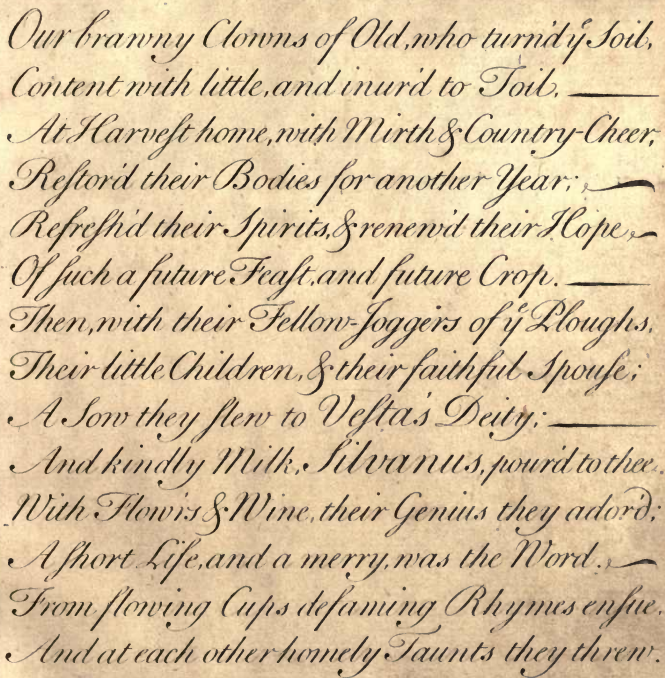 Our brawny Clowns of Old, who turn'd yͤ Soil,
Content with little, and inur'd to Toil, ——
At Harveſt home, with Mirth & Country-Cheer,
Reſtor'd their Bodies for another Year; —
Refreſh'd their Spirits, & renew'd their Hope —
Of ſuch a future Feaſt, and future Crop. ——
Then, with their Fellow-Joggers of yͤ Ploughs,
Their little Children, & their faithful Spouſe;
A Sow they ſlew to Veſta's Deity; ——
And kindly Milk, Silvanus, pour'd to thee.
With Flow'rs & Wine, their Genius they ador'd;
A ſhort Life, and a merry, was the Word. —
From flowing Cups defaming Rhymes enſue,
And at each other homely Taunts they threw.